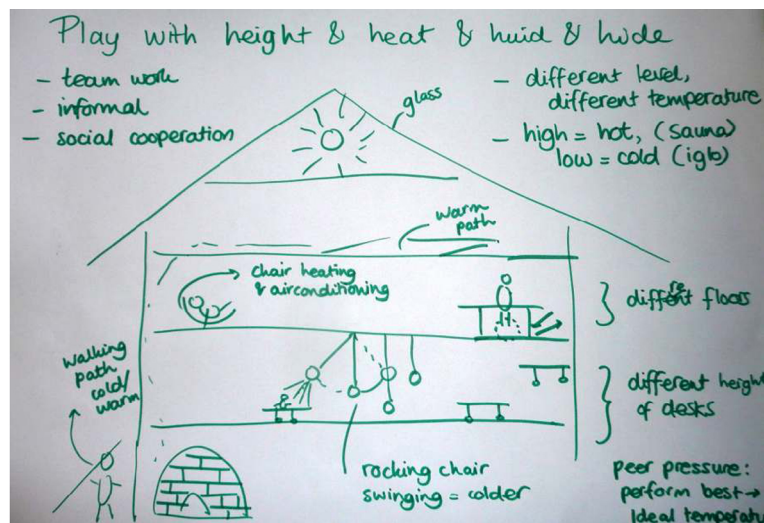 Play with height & heat & huid & hide
- team work
- informal
- social cooperation
glass
- different level,
different temperature
- high = hot, (sauna)
low = cold (iglo)
warm
path
chair heating
& airconditioning
different floors
walking
path
cold/
warm
different height
of desks
rocking chair
swinging = colder
peer pressure:
perform best →
Ideal temperatu